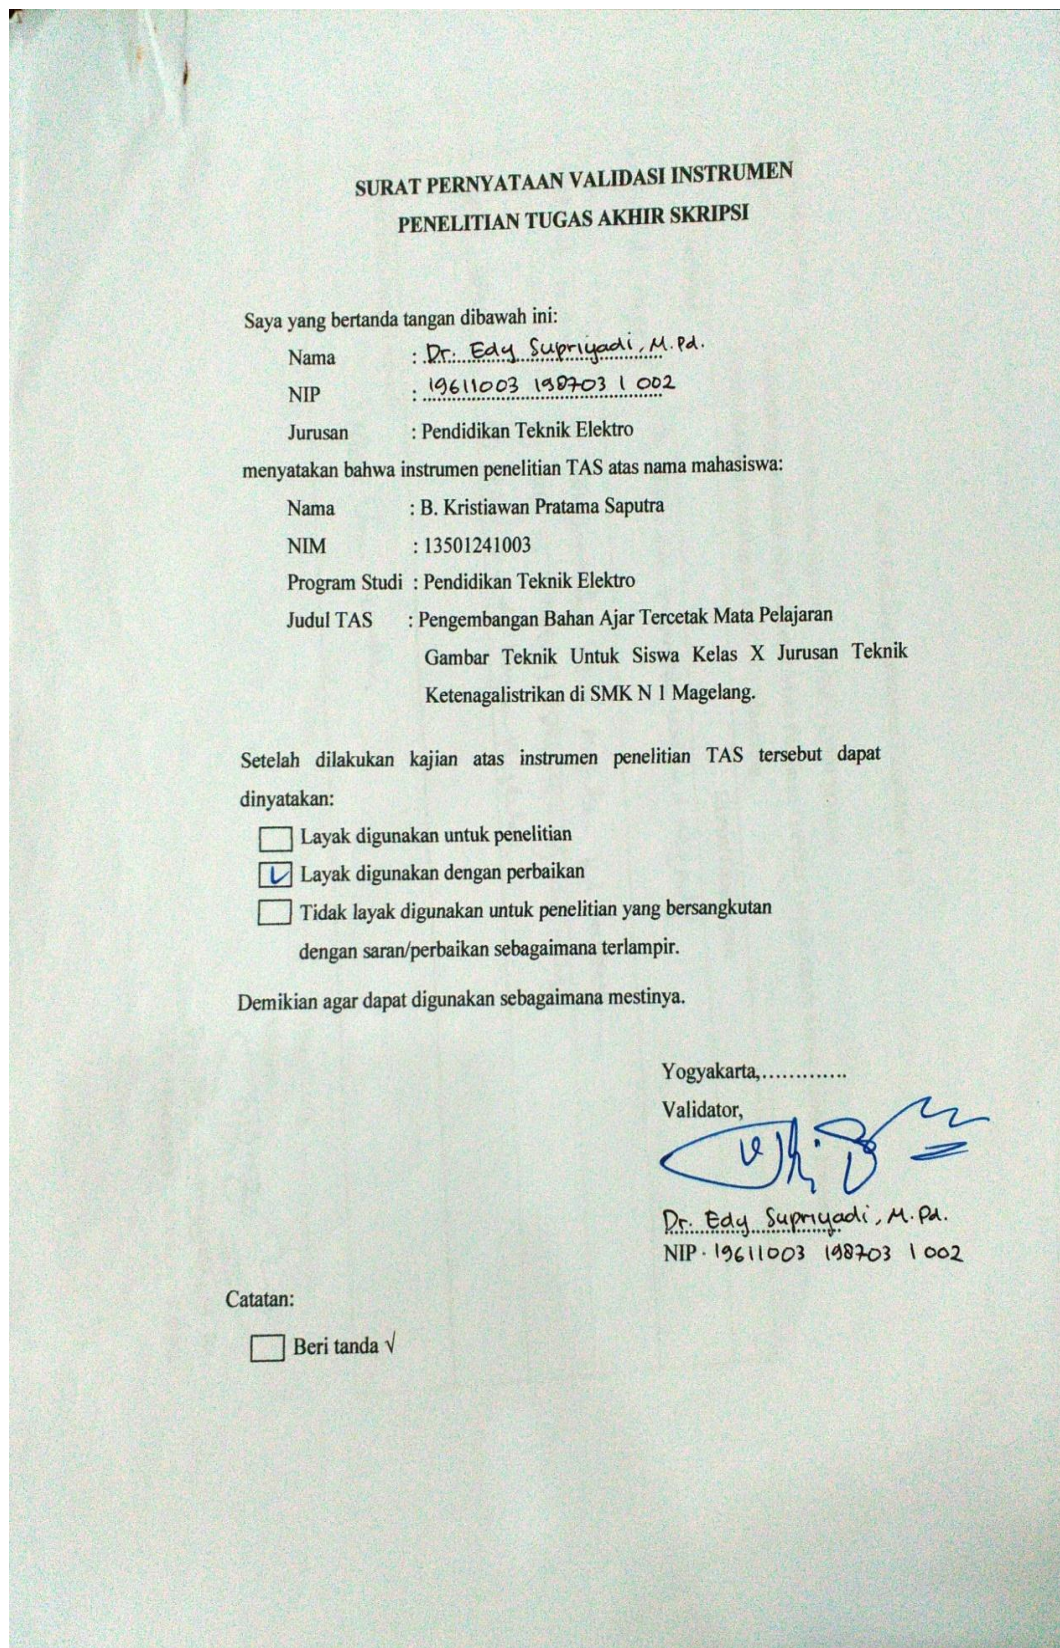 SURAT PERNYATAAN VALIDASI INSTRUMEN
PENELITIAN TUGAS AKHIR SKRIPSI
Saya yang bertanda tangan dibawah ini:
Nama : Dr. Edy Supriyadi, M.Pd.
NIP : 19611003 198703 1 002
Jurusan : Pendidikan Teknik Elektro
menyatakan bahwa instrumen penelitian TAS atas nama mahasiswa:
Nama : B. Kristiawan Pratama Saputra
NIM : 13501241003
Program Studi : Pendidikan Teknik Elektro
Judul TAS : Pengembangan Bahan Ajar Tercetak Mata Pelajaran
Gambar Teknik Untuk Siswa Kelas X Jurusan Teknik
Ketenagalistrikan di SMK N 1 Magelang.
Setelah dilakukan kajian atas instrumen penelitian TAS tersebut dapat
dinyatakan:
Layak digunakan untuk penelitian
Layak digunakan dengan perbaikan
Tidak layak digunakan untuk penelitian yang bersangkutan
dengan saran/perbaikan sebagaimana terlampir.
Demikian agar dapat digunakan sebagaimana mestinya.
Yogyakarta,.............
Validator,
Dr. Edy Supriyadi, M.Pd.
NIP. 19611003 198703 1 002
Catatan:
Beri tanda √